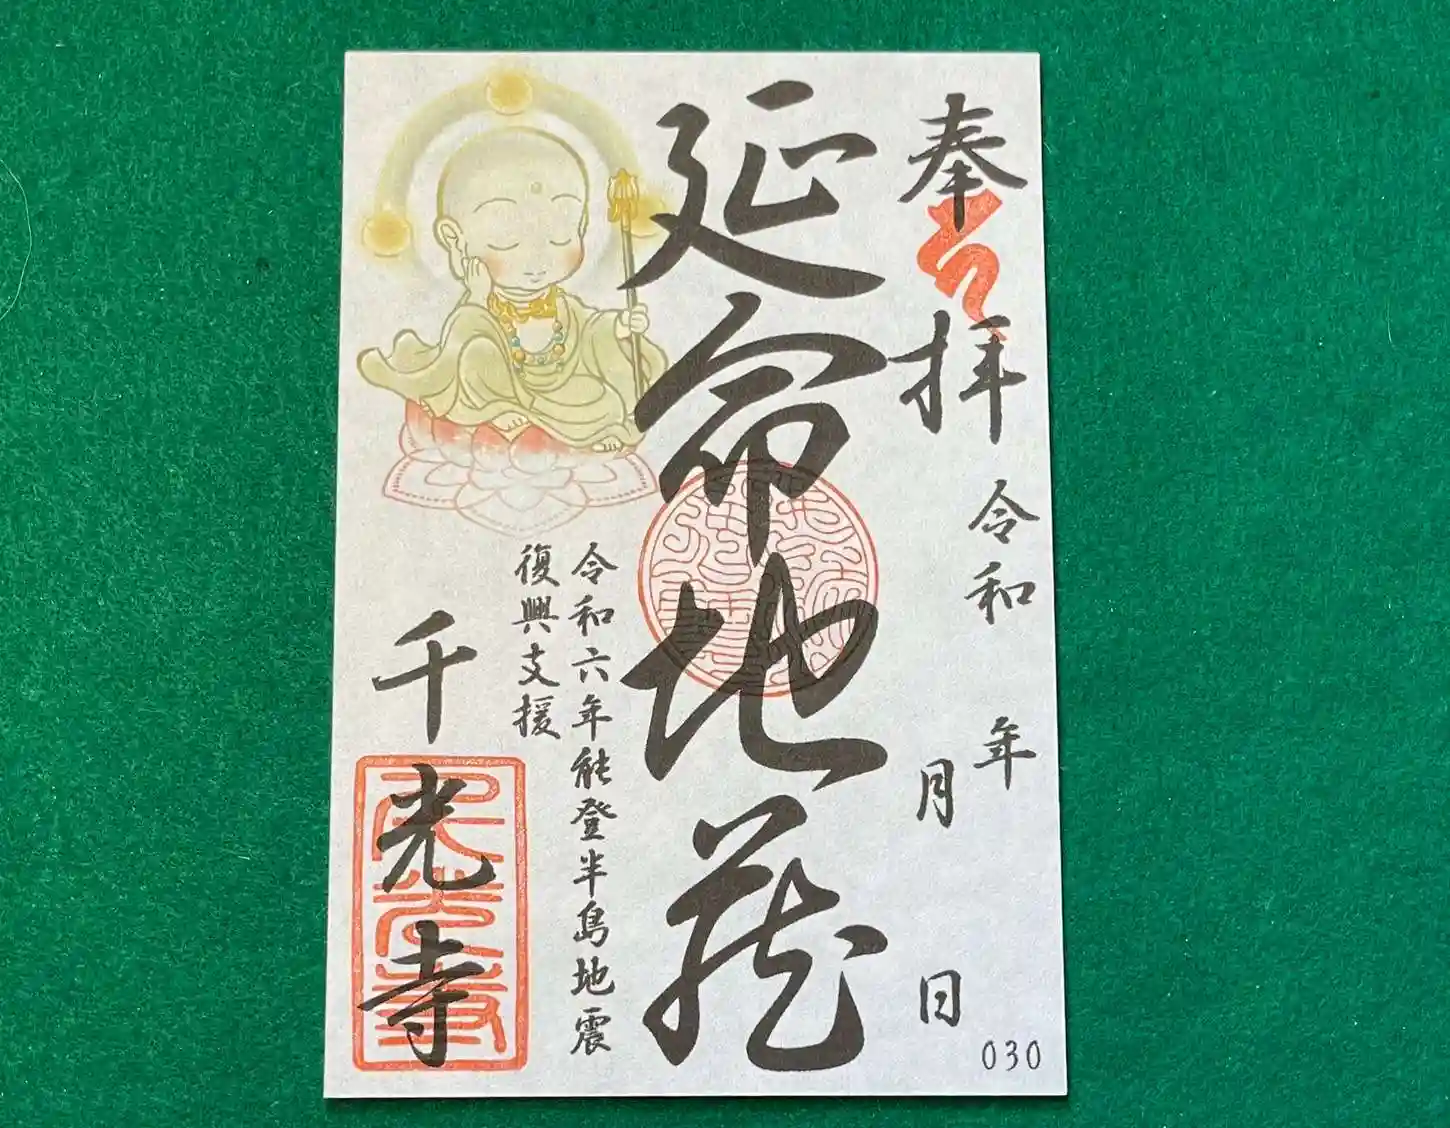 奉拝
令和 年
月 日
030
延命地蔵
令和六年能登半島地震
復興支援
千光寺